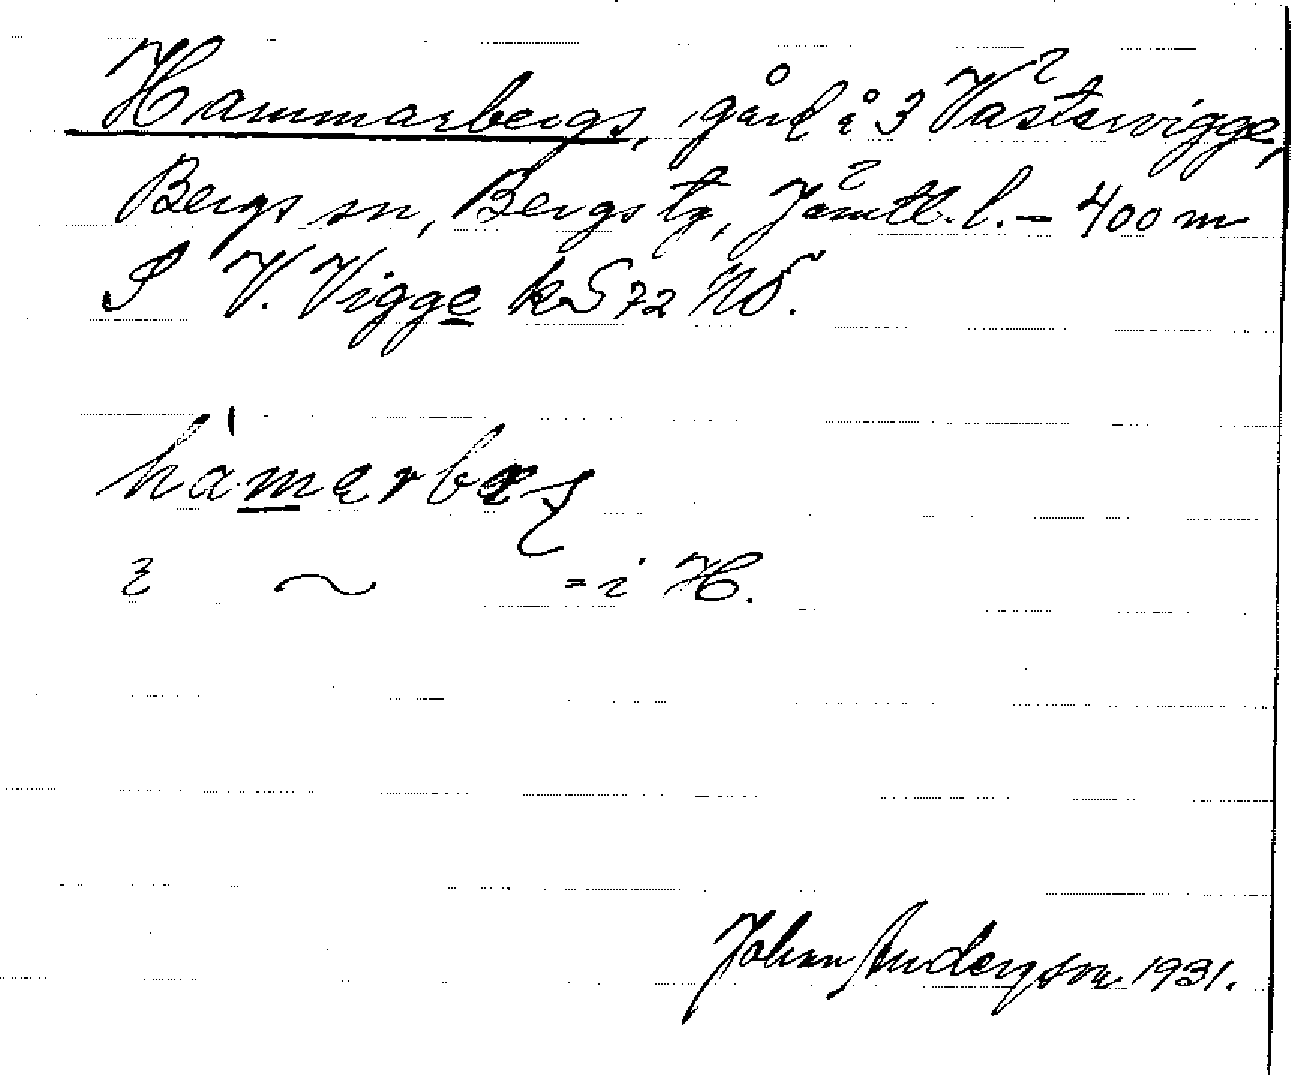 Hammarbergs, gård å 3 Västervigge,
Bergs sn, Bergs tg, Jämtl. l. – 400 m
S V. Vigge kS 72 NO.
hamarbæ
~ = i H.
Johan Anderson 1931.